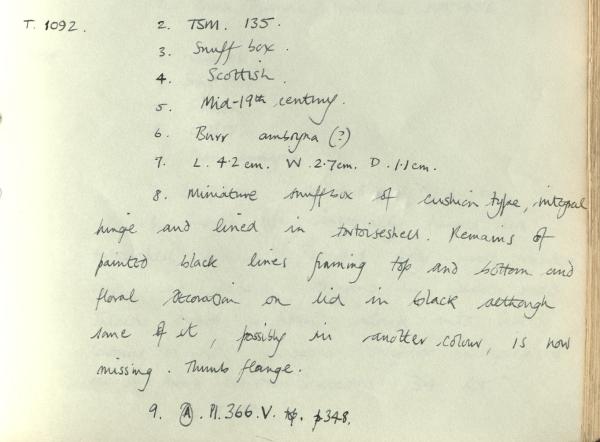 T. 1092. 2. TSM. 135.
3. Snuff box.
4. Scottish.
5. Mid-19th century.
6. Burr amboyna (?)
7. L. 4.2 cm. W. 2.7cm. D. 1.1 cm.
8. Miniature snuffbox of cushion type, integral
hinge and lined in tortoiseshell. Remains of
painted black lines framing top and bottom and
floral decoration on lid in black although
some of it, possibly in another colour, is now
missing. Thumb flange.
9. A. Pl. 366. V. p348.